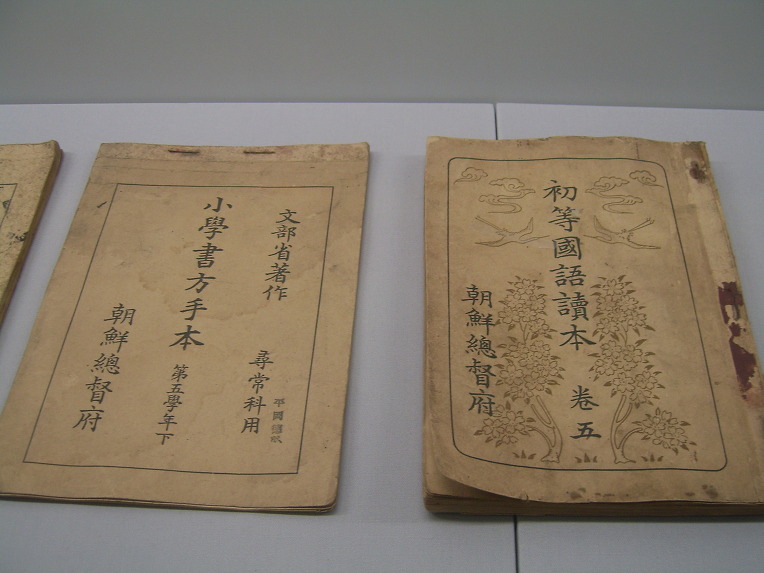 文部省著作
尋常科用
小學書方手本
第五學年下
朝鮮總督府
初等國語讀本
卷五
朝鮮總督府